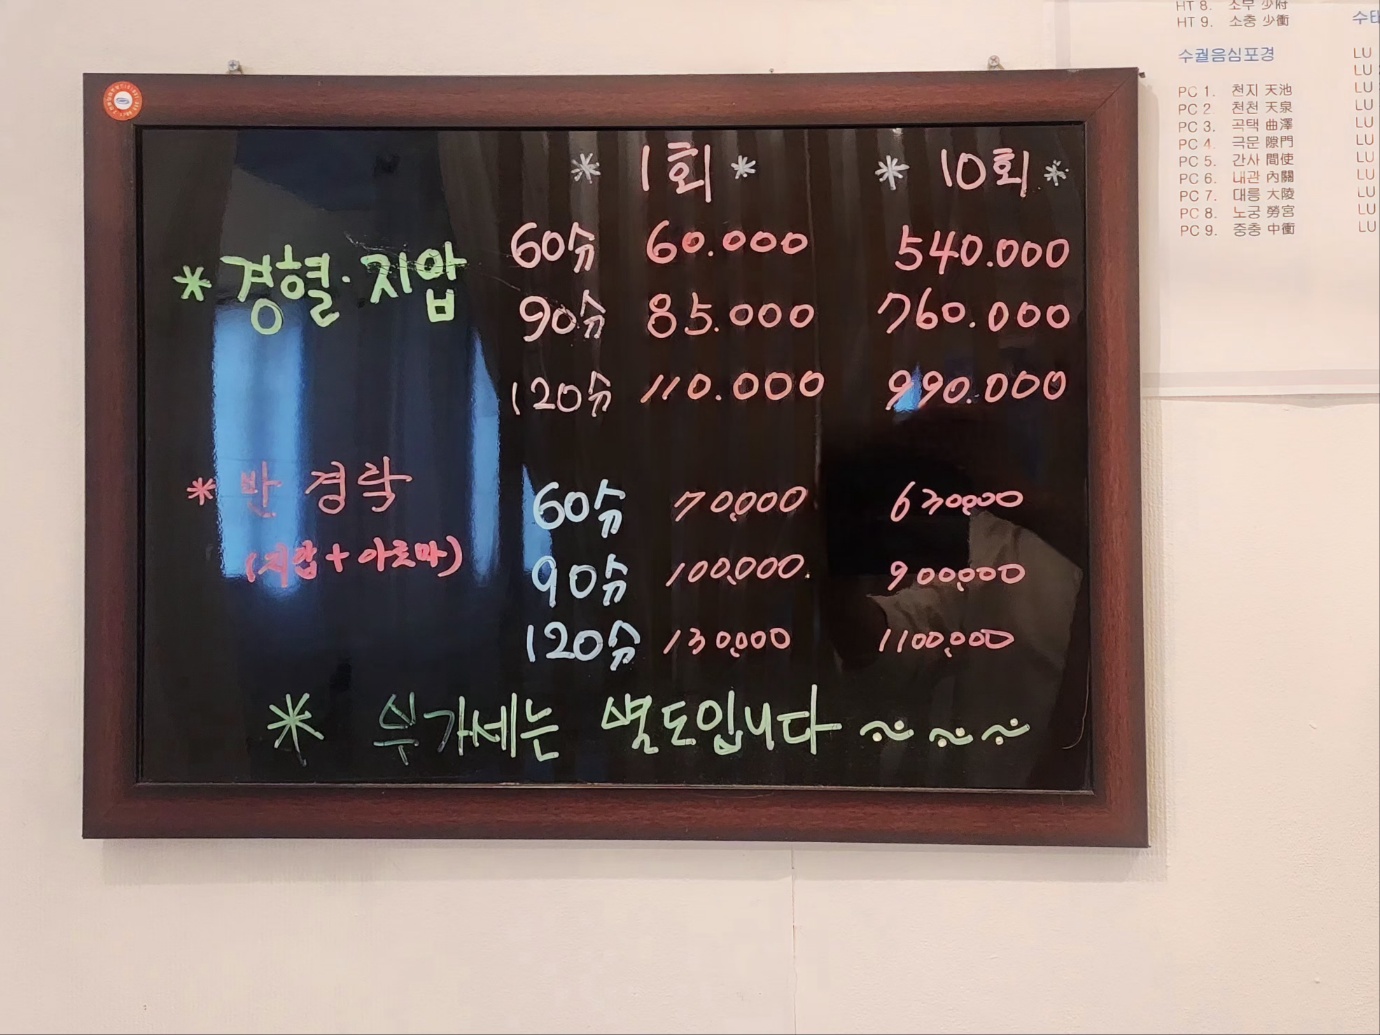 * 1회 * * 10회 *
* 경혈·지압
60分 60.000 540.000
90分 85.000 760.000
120分 110.000 990.000
* 반 경락
(지압 + 아로마)
60分 70,000 630,000
90分 100,000. 900,000
120分 130,000 1100,000
* 부가세는 별도입니다 ~ ~ ~
HT 8. 소부 少府
HT 9. 소충 少衝
수궐음심포경
PC 1. 천지 天池
PC 2. 천천 天泉
PC 3. 곡택 曲澤
PC 4. 극문 隙門
PC 5. 간사 間使
PC 6. 내관 內關
PC 7. 대릉 大陵
PC 8. 노궁 勞宮
PC 9. 중충 中衝
LU
LU
LU
LU
LU
LU
LU
LU
LU
LU
LU